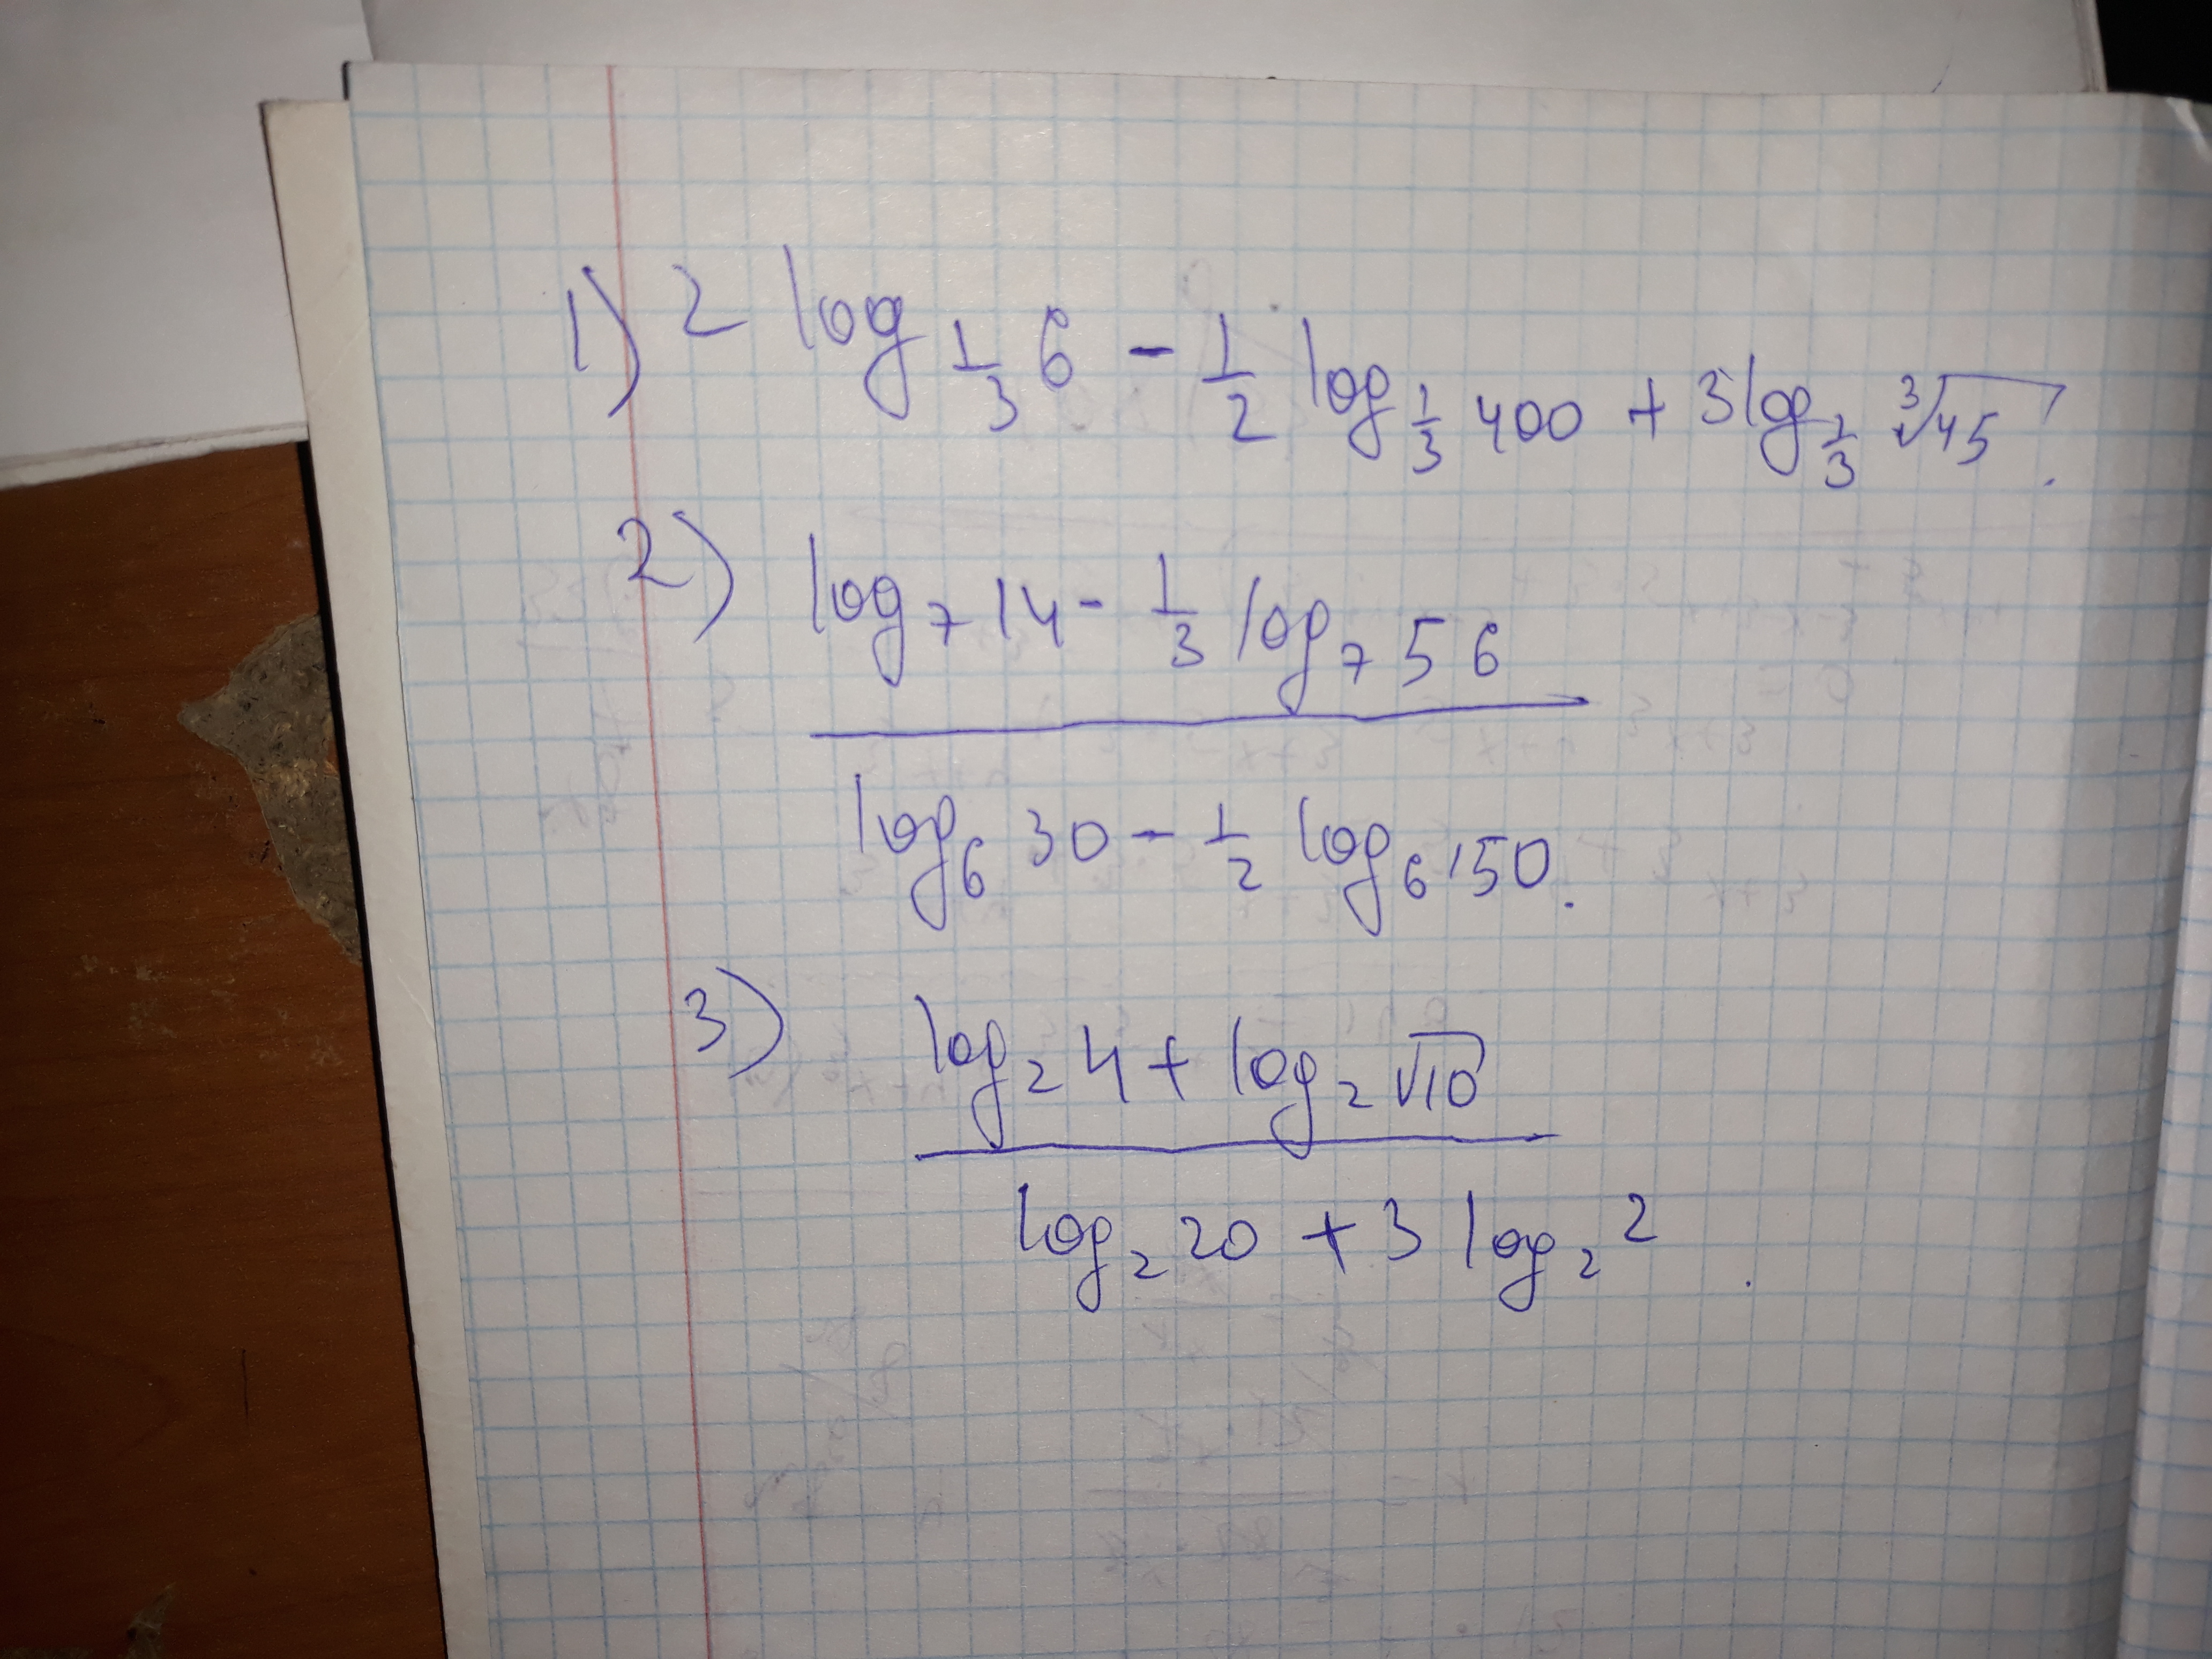 1) 2 log_{1/3} 6 - 1/2 log_{1/3} 400 + 3 log_{1/3} ∛45.
2) log_7 14 - 1/3 log_7 56
log_6 30 - 1/2 log_6 150.
3) log_2 4 + log_2 √10
log_2 20 + 3 log_2 2.